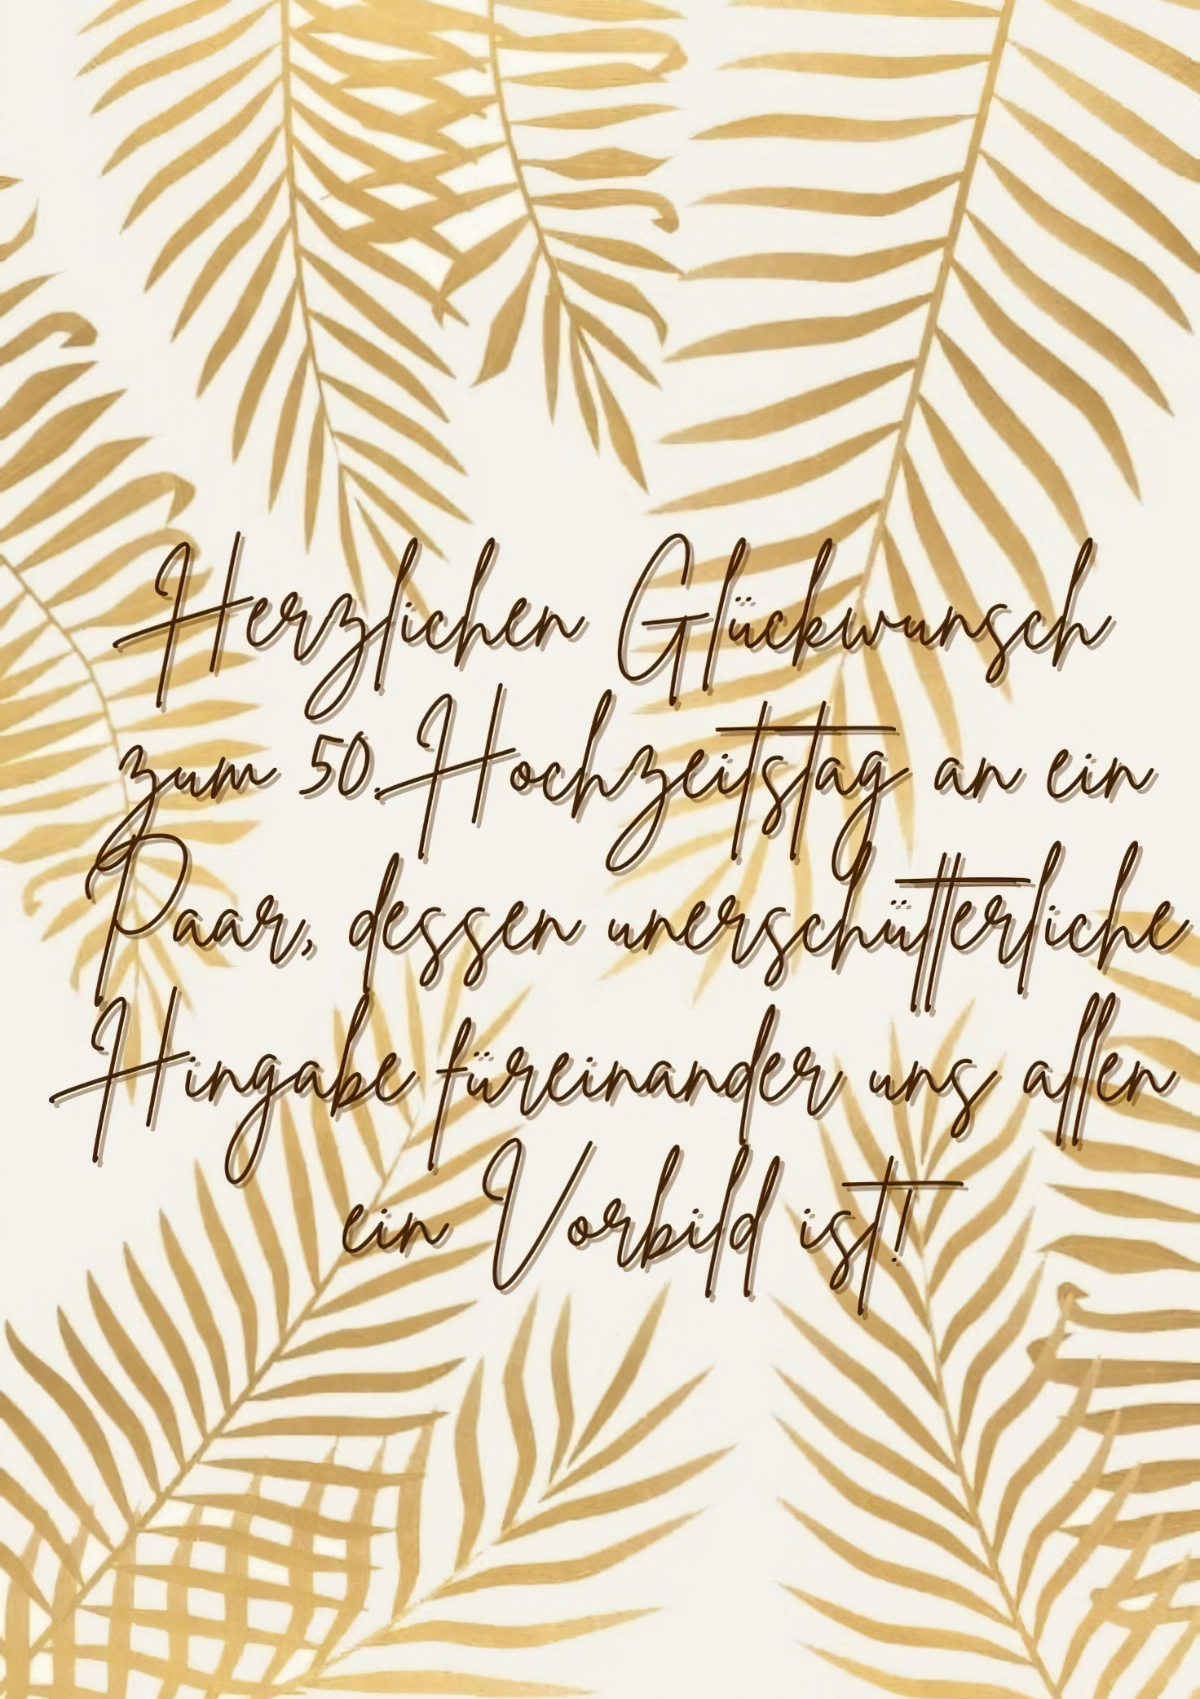 Herzlichen Glückwunsch
zum 50. Hochzeitstag an ein
Paar, dessen unerschütterliche
Hingabe füreinander uns allen
ein Vorbild ist!